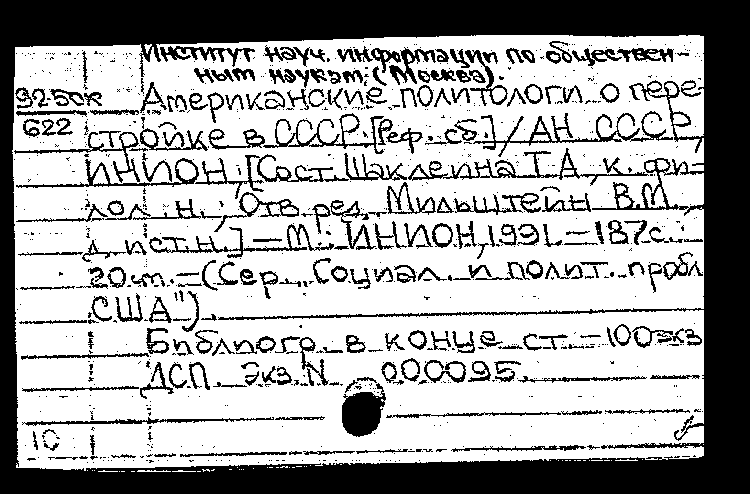 Институт науч. информации по обществен-
ным наукам (Москва).
92-50к
622
Американские политологи о пере-
стройке в СССР: [Реф. сб.] / АН СССР,
ИНИОН; [Сост. Шаклеина Т.А., к. фи-
лол. н.; Отв. ред. Мильштейн В.М.,
д. ист. н.] — М.: ИНИОН, 1991. — 187с.:
20см. — (Сер. „Социал. и полит. пробл.
США").
Библиогр. в конце ст. — 100экз
ДСП. Экз. N 000095.
10